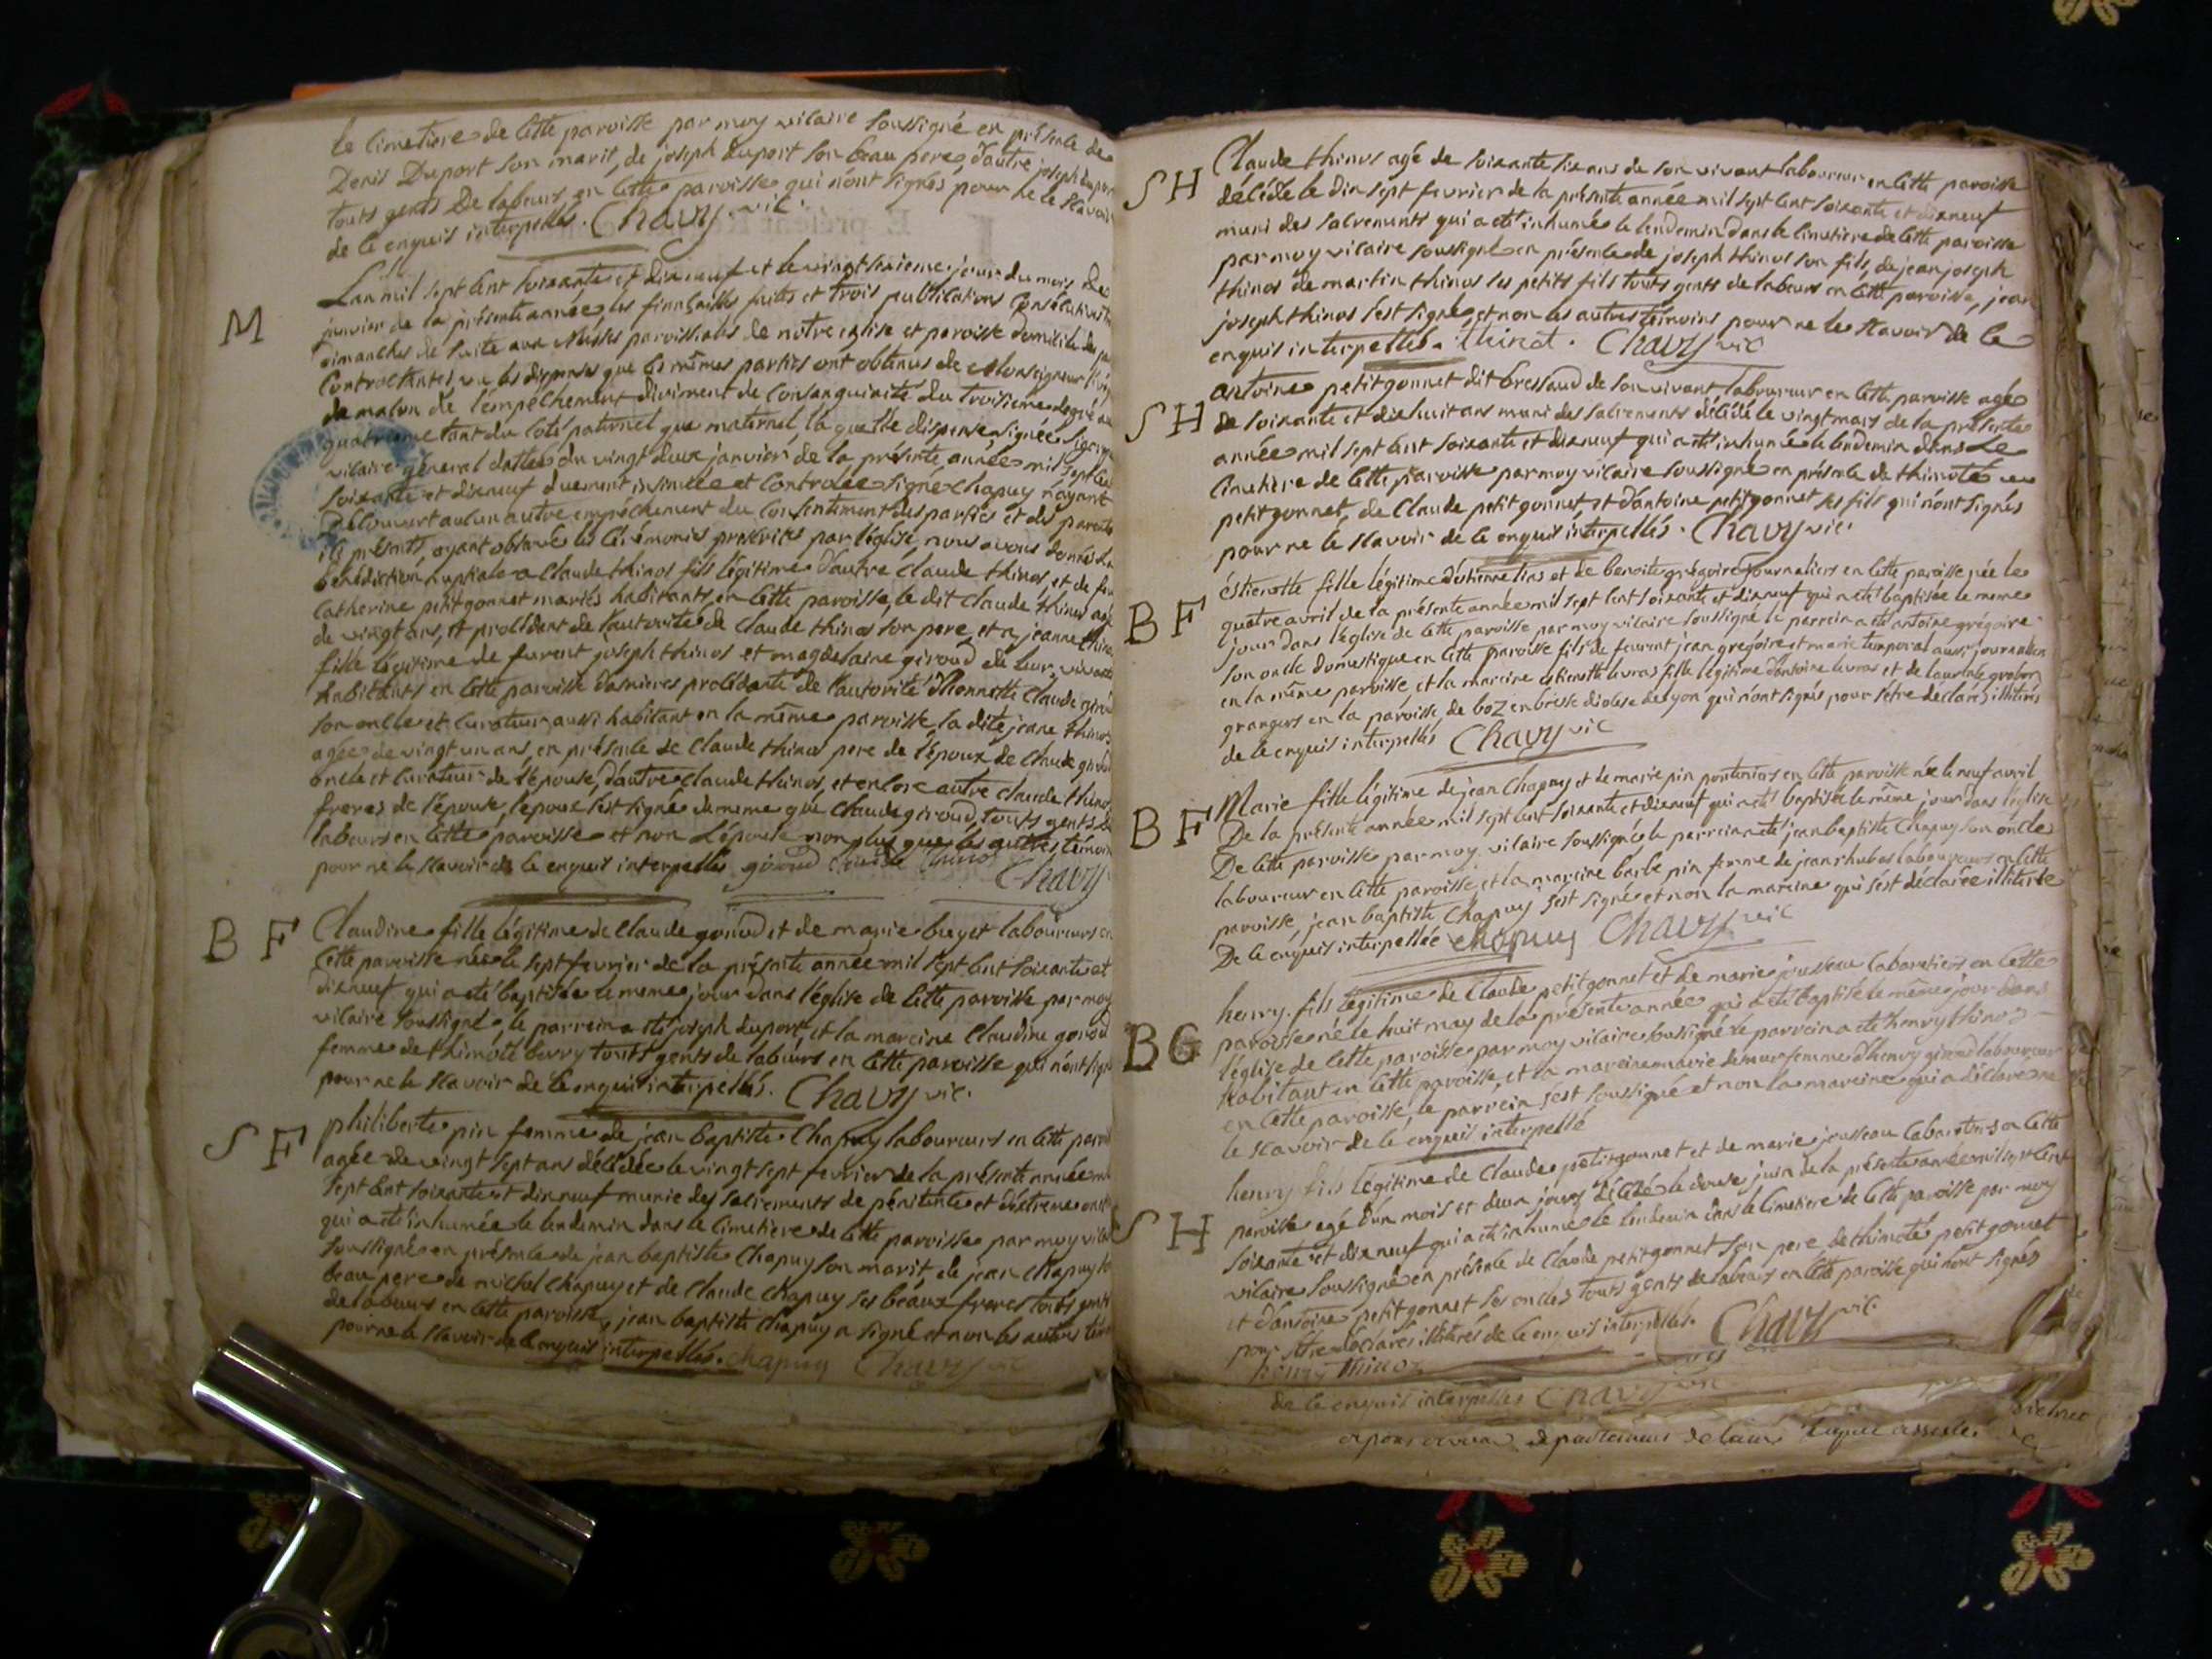 le cimetiere de cette paroisse par moy vicaire soussigné en présence de
Denis Duport son marit, de joseph duport son beau pere, d'autre joseph dupor
touts gents de labeurs en cette paroisse qui n'ont signés pour ne le scavoir
de ce enquis interpellés. Chavy vic.
M
L'an mil sept cent soixante et dixneuf et le vingt sixieme jour du mois de
janvier de la présente année, les fiançailles faites et trois publications consécutives
dimanches de suite aux Messes paroissiales de notre eglise et paroisse domicile des
contractantes, vu les dispenses que les mêmes parties ont obtenus de Monseigneur
de macon de l'empêchement diriment de consanguinité du troisieme degré au
quatrieme tant du coté paternel que maternel, la quelle dispense signée
vicaire général dattée du vingt deux janvier de la présente année mil sept cent
soixante et dixneuf duement insinuée et controlée signé chapuy n'ayant
découvert aucun autre empêchement du consentement des parties et des parents
icy présents, ayant observé les cérémonies prescrites par l'église, nous avons donnés la
bénédiction nuptiale a claude thinos fils légitime d'autre claude thinos, et de feu
catherine petitgonnet mariés habitants en cette paroisse, le dit claude thinos agé
de vingt ans, et procédant de l'autorité de claude thinos son pere, et a jeanne thinos
fille légitime de furent joseph thinos et magdelaine giroud de leur vivant
habitants en cette paroisse d'asnieres procédante de l'autorité d'honnette claude giroud
son oncle et curateur aussi habitant en la même paroisse, la dite jeane thinos
agée de vingt un ans, en présence de claude thinos pere de l'époux, de claude giroud
oncle et curateur de l'épouse, d'autre claude thinos, et encore autre claude thinos
freres de l'épouse, l'époux s'est signé de meme que claude giroud, touts gents de
labeurs en cette paroisse et non l'épouse non plus que les autres témoins
pour ne le scavoir de ce enquis interpellés giroud Claude thinos
Chavy
B F
Claudine fille légitime de claude giroud et de marie buget laboureurs en
cette paroisse née le sept fevrier de la présente année mil sept cent soixante et
dixneuf qui a eté baptisée le meme jour dans l'église de cette paroisse par moy
vicaire soussigné, le parrein a eté joseph duport, et la mareine claudine giroud
femme de thimoté burry touts gents de labeurs en cette paroisse qui n'ont signés
pour ne le scavoir de ce enquis interpellés. Chavy vic.
S F
philiberte pin femme de jean baptiste Chapuy laboureurs en cette paroisse
agée de vingt sept ans décédée le vingt sept fevrier de la présente année mil
sept cent soixante et dixneuf munie des sacrements de pénitence et d'extreme onction
qui a eté inhumée le lendemin dans le cimetiere de cette paroisse par moy vicaire
soussigné en présence de jean baptiste Chapuy son marit, de jean chapuy son
beau pere de michel chapuy et de claude chapuy ses beaux freres touts gents
de labeurs en cette paroisse, jean baptiste chapuy a signé et non les autres témoins
pour ne le scavoir de ce enquis interpellés. chapuy Chavy vic
S H
Claude thinos agé de soixante six ans de son vivant laboureur en cette paroisse
décédé le dix sept fevrier de la présente année mil sept cent soixante et dixneuf
muni des sacrements qui a eté inhumé le lendemin dans le cimetiere de cette paroisse
par moy vicaire soussigné en présence de joseph thinos son fils, de jean joseph
thinos de martin thinos ses petits fils touts gents de labeurs en cette paroisse, jean
joseph thinos s'est signé, et non les autres témoins pour ne le scavoir de ce
enquis interpellés. thinot. Chavy vic
S H
antoine petitgonnet dit bressaud de son vivant laboureur en cette paroisse agé
de soixante et dixhuit ans muni des sacrements décédé le vingt mars de la présente
année mil sept cent soixante et dixneuf qui a eté inhumé le lendemin dans le
cimetiere de cette paroisse par moy vicaire soussigné en présence de thimoté
petitgonnet, de Claude petitgonnet, et d'antoine petitgonnet ses fils qui n'ont signés
pour ne le scavoir de ce enquis interpellés. Chavy vic.
B F
éstienette fille légitime d'estienne lias et de benoite grégoire journaliers en cette paroisse née le
quatre avril de la présente année mil sept cent soixante et dixneuf qui a eté baptisée le meme
jour dans l'église de cette paroisse par moy vicaire soussigné le parrein a eté antoine grégoire
son oncle domestique en cette paroisse fils de feurent jean grégoire et marie temporal aussi journaliers
en la même paroisse, et la mareine estienette livras fille légitime d'antoine livras et de laurence grobon
grangers en la paroisse de boz en bresse diocese de lyon qui n'ont signés pour s'être déclarés illiterés
de ce enquis interpellés Chavy vic
B F
Marie fille légitime de jean Chapuy et de marie pin pontoniers en cette paroisse née le neuf avril
De la présente année mil sept cent soixante et dixneuf qui a eté baptisée le même jour dans l'église
De cette paroisse par moy vicaire soussigné, le parrein a eté jean baptiste Chapuy son oncle
laboureur en cette paroisse, et la mareine barbe pin femme de jean hubas laboureurs en cette
paroisse, jean baptiste Chapuy s'est signé et non la mareine qui s'est déclarée illiterée
De ce enquis interpellée chapuy Chavy vic
B G
henry fils légitime de Claude petitgonnet et de marie jousseau cabaretiers en cette
paroisse né le huit may de la présente année qui a eté baptisé le même jour dans
l'église de cette paroisse par moy vicaire soussigné le parrein a eté henry thinos
habitant en cette paroisse, et la mareine marie femme d'henry giroud laboureur
en cette paroisse, le parrein s'est soussigné et non la mareine qui a déclaré ne
le scavoir de ce enquis interpellé
S H
henry fils légitime de Claude petitgonnet et de marie jousseau cabaretiers en cette
paroisse agé d'un mois et deux jours décédé le douze juin de la présente année mil sept cent
soixante et dixneuf qui a eté inhumé le lendemin dans le cimetiere de cette paroisse par moy
vicaire soussigné en présence de claude petitgonnet son pere de thimoté petitgonnet
et d'antoine petitgonnet ses oncles touts gents de labeurs en cette paroisse qui n'ont signés
pour s'être déclarés illiterés de ce enquis interpellés. Chavy vic.
henry thinos
de ce enquis interpellés Chavy vic
département de l'ain